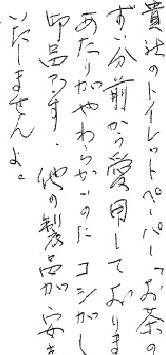 貴社のトイレットペーパー「お茶の
ずい分前から愛用しておりま
あたりがやわらかいのに コシがし
印品です. 他の製品が安き
いたしませんよ。